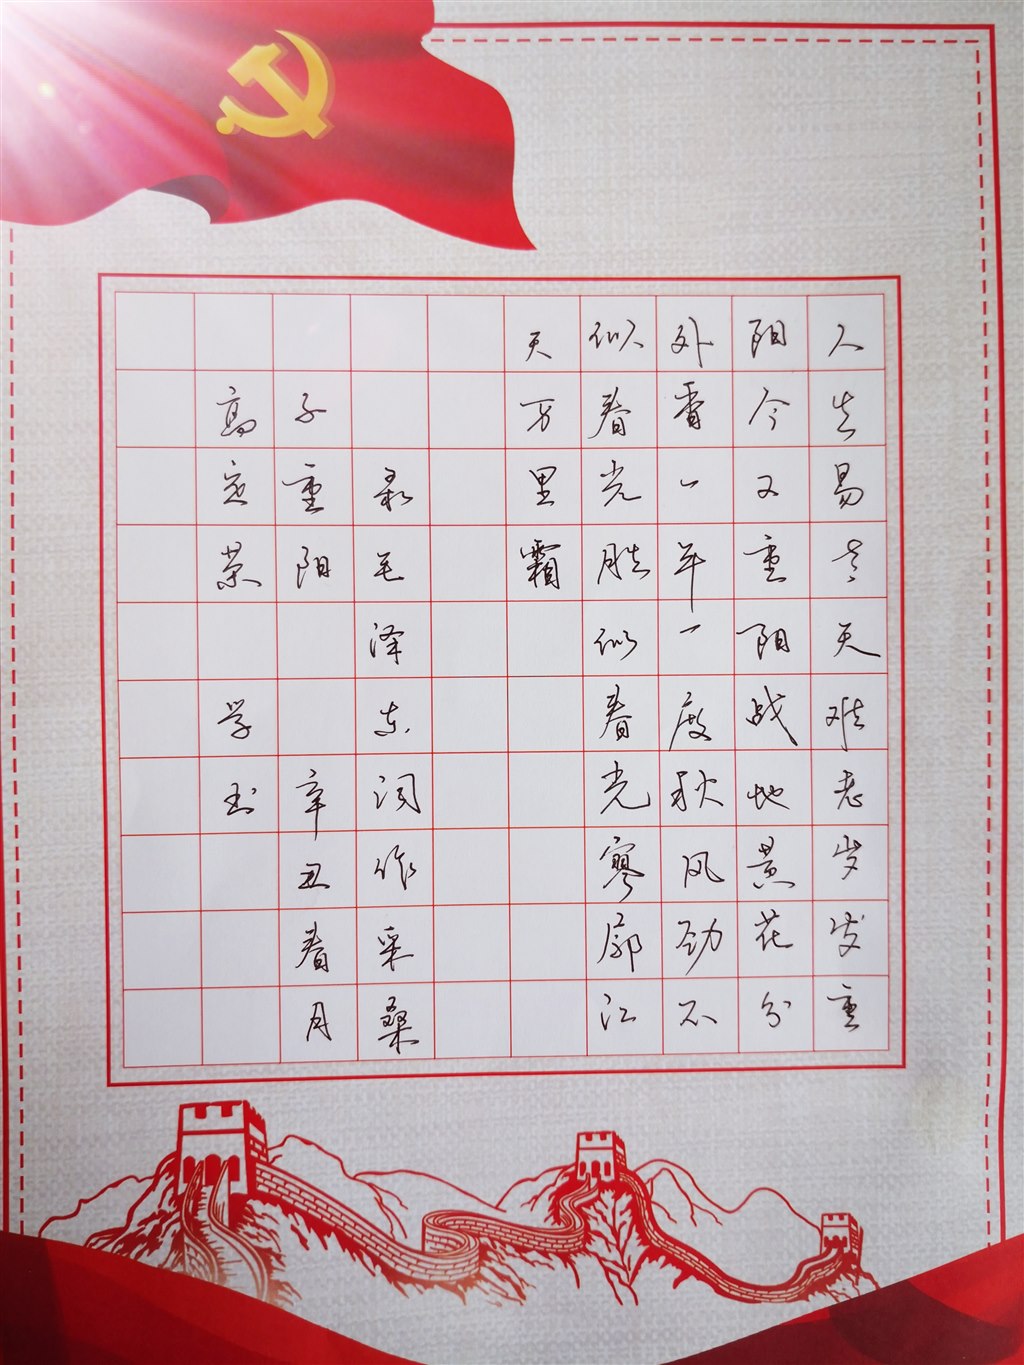 人生易老天难老岁岁重
阳今又重阳战地黄花分
外香一年一度秋风劲不
似春光胜似春光寥廓江
天万里霜
录毛泽东词作采桑
子重阳 辛丑春月
高定荣 学书